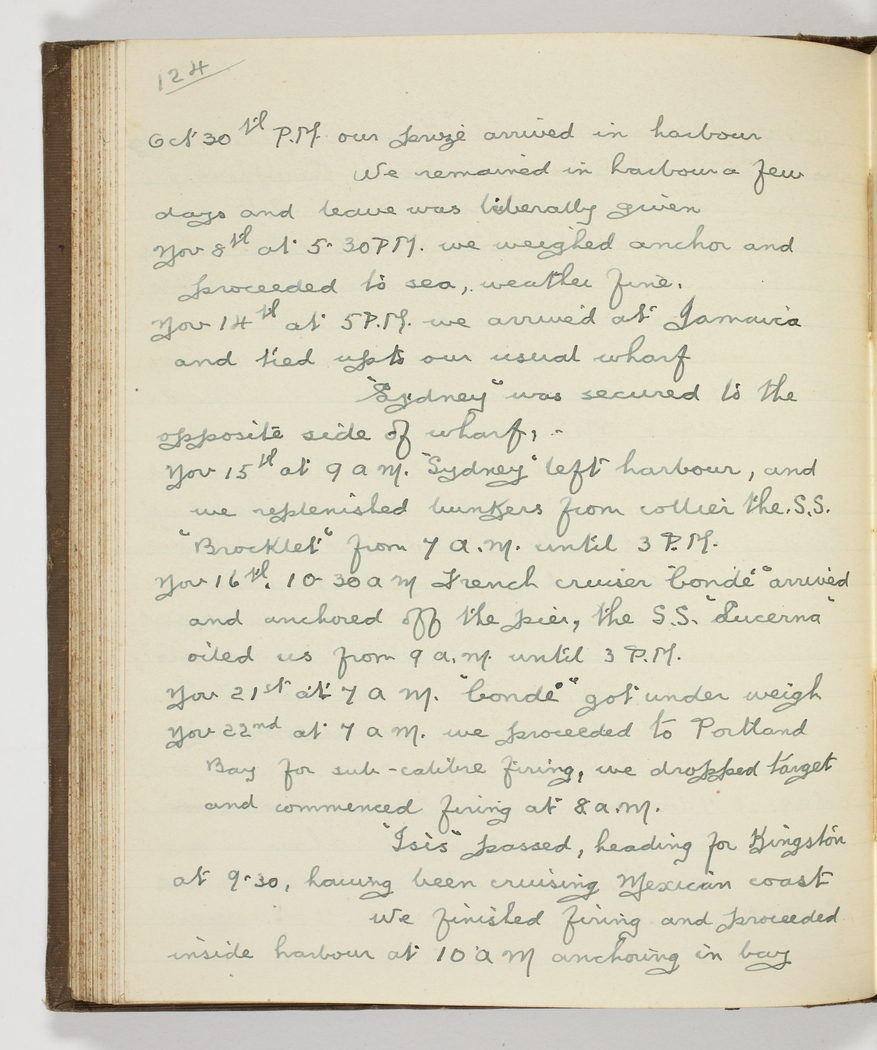 124
Oct 30th P.M. our prize arrived in harbour
We remained in harbour a few
days and leave was liberally given
Nov 8th at 5-30 P.M. we weighed anchor and
proceeded to sea, weather fine.
Nov 14th at 5 P.M. we arrived at Jamaica
and tied up to our usual wharf
"Sydney" was secured to the
opposite side of wharf, -
Nov 15th at 9 a m. "Sydney" left harbour, and
we replenished bunkers from collier the. S.S.
"Brocklet" from 7 a.m. until 3 P.M.
Nov 16th. 10-30 a m French cruiser "Condé" arrived
and anchored off the pier, the S.S. "Lucerna"
oiled us from 9 a.m. until 3 P.M.
Nov 21st at 7 a m. "Condé" got under weigh
Nov 22nd at 7 a m. we proceeded to Portland
Bay for sub-calibre firing, we dropped target
and commenced firing at 8 a.m.
"Isis" passed, heading for Kingston
at 9-30, having been cruising Mexican coast
We finished firing and proceeded
inside harbour at 10 a m anchoring in bay